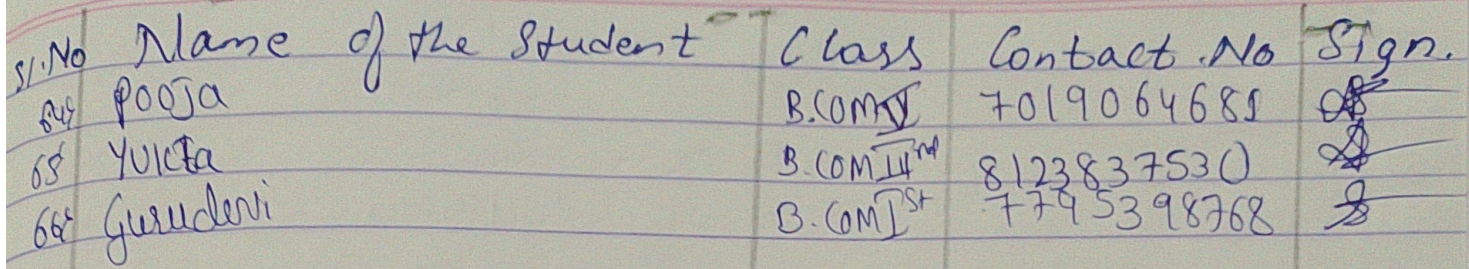 Sl.No Name of the Student Class Contact.No Sign.
Pooja B.COM V 7019064681
Yukta B.COM III rd 8123837530
Gurudevi B.COM I St 7795398768